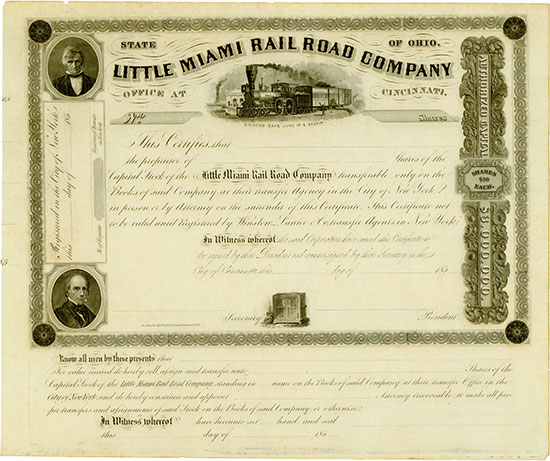 STATE OF OHIO.
LITTLE MIAMI RAIL ROAD COMPANY
OFFICE AT CINCINNATI.
DIVIDEND DAYS JUNE 1st & DECR 1st
No. Shares
This Certifies, that
the proprietor of Shares of the
Capital Stock of the Little Miami Rail Road Company transferable only on the
Books of said Company at their transfer Agency in the City of New York
in person or by Attorney on the surrender of this Certificate. This Certificate not
to be valid until Registered by Winslow, Lanier & Co. transfer Agents in New York.
In Witness whereof the said Corporation have caused this Certificate to
be signed by their President and countersigned by their Secretary in the
City of Cincinnati this day of 185
Secretary President
Registered in the City of New York
this day of 185
AUTHORIZED CAPITAL
SHARES
$50
EACH.
Know all men by these presents that
For value received do hereby sell assign and transfer unto Shares of the
Capital Stock of the Little Miami Rail Road Company, standing in name on the Books of said Company at their transfer Office in the
City of New York and do hereby constitute and appoint Attorney irrevocable to make all pro-
per transfers and assignments of said Stock on the Books of said Company or otherwise:
In Witness whereof have hereunto set hand and seal
this day of 185